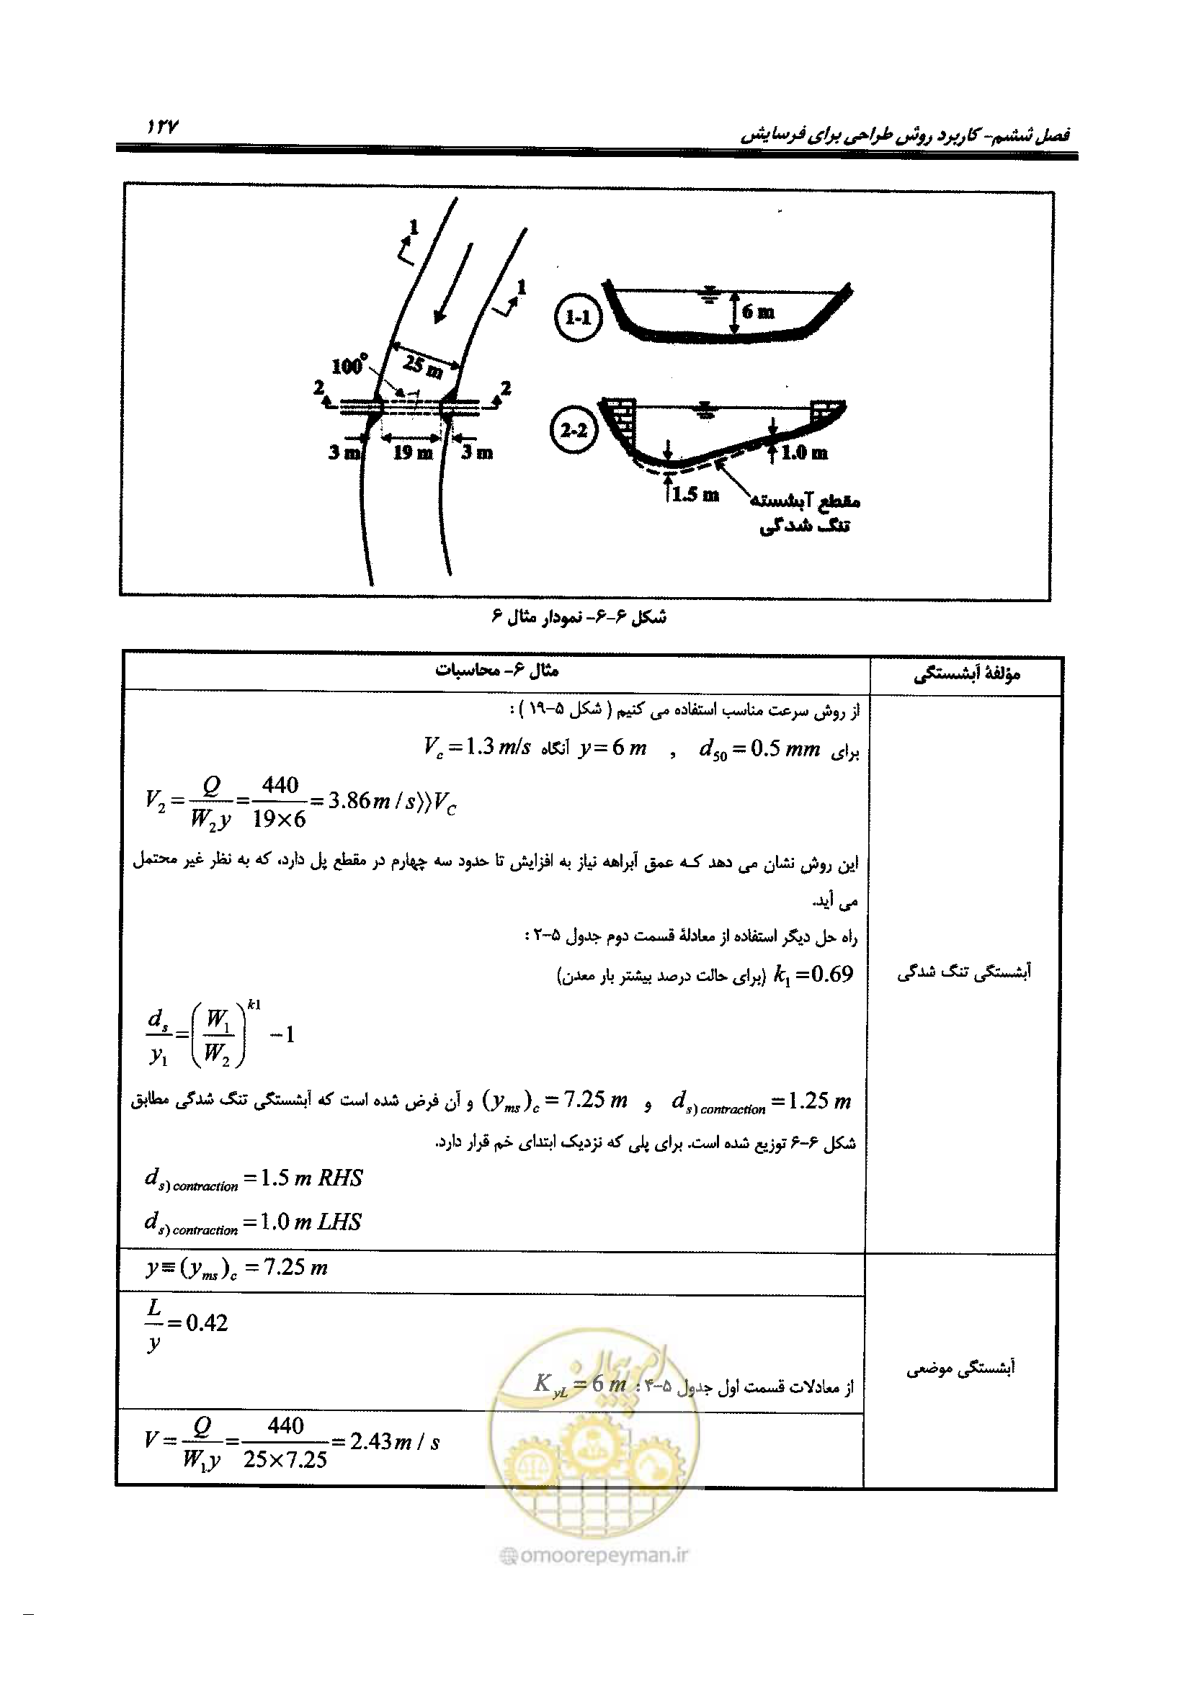 فصل ششم- کاربرد روش طراحی برای فرسایش
۱۲۷
1
1
25 m
100°
2
2
3 m
19 m
3 m
1-1
6 m
2-2
1.0 m
1.5 m
مقطع آبشسته
تنگ شدگی
شکل ۶-۶- نمودار مثال ۶
مؤلفهٔ آبشستگی
مثال ۶- محاسبات
آبشستگی تنگ شدگی
از روش سرعت مناسب استفاده می کنیم ( شکل ۵-۱۹ ) :
برای d50 = 0.5 mm , y = 6 m آنگاه Vc = 1.3 m/s
V2 = Q / W2y = 440 / 19×6 = 3.86 m / s⟩⟩VC
این روش نشان می دهد که عمق آبراهه نیاز به افزایش تا حدود سه چهارم در مقطع پل دارد، که به نظر غیر محتمل
می آید.
راه حل دیگر استفاده از معادلهٔ قسمت دوم جدول ۵-۲ :
k1 = 0.69 (برای حالت درصد بیشتر بار معدن)
ds / y1 = (W1 / W2)^k1 − 1
ds) contraction = 1.25 m و (yms)c = 7.25 m و آن فرض شده است که آبشستگی تنگ شدگی مطابق
شکل ۶-۶ توزیع شده است. برای پلی که نزدیک ابتدای خم قرار دارد.
ds) contraction = 1.5 m RHS
ds) contraction = 1.0 m LHS
آبشستگی موضعی
y ≡ (yms)c = 7.25 m
L / y = 0.42
از معادلات قسمت اول جدول ۵-۴ : KyL = 6 m
V = Q / W1y = 440 / 25×7.25 = 2.43 m / s
امور پیمان
@omoorepeyman.ir